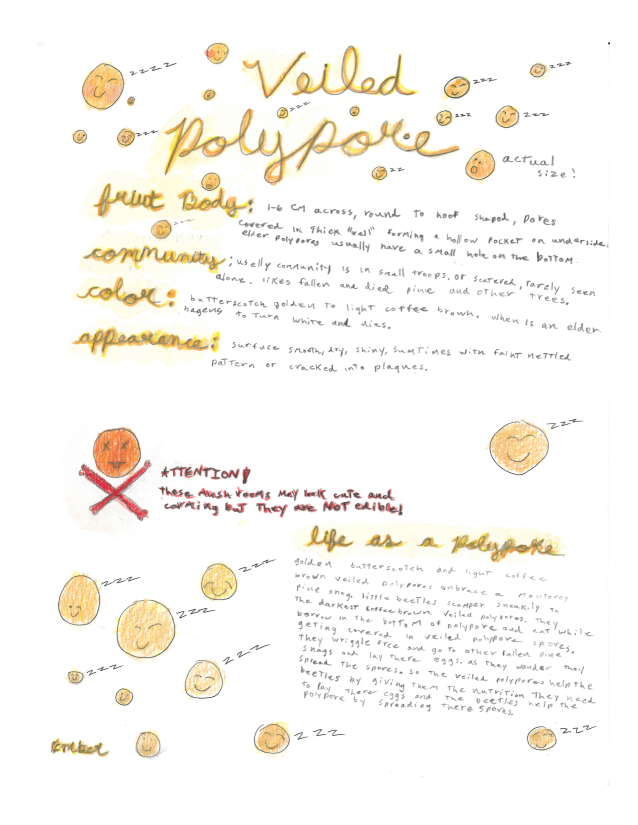 Veiled
Polypore
zzzz
zzz
zzz
zzz
zzz
zzz
zzz
zz
actual
size!
fruit Body: 1-6 CM across, round to hoof shaped, Pores
covered in thick "veil" forming a hollow pocket on underside.
elder polypores usually have a small hole on the bottom.
community: uselly community is in small troops. or scatered, rarely seen
alone. likes fallen and died pine and other trees.
color: butterscotch golden to light coffee brown. when is an elder
bagens to turn white and dies.
appearance: surfuce smooth, dry, shiny, sumtimes with faint nettled
pattern or cracked into plaques.
zzz
zzz
ATTENTION!
these Mushrooms May look cute and
carming but They are NOT edible!
life as a polypore
golden butterscotch and light coffee
brown veiled polypores enbrace a Monterey
pine snag. little beetles scamper sneakily to
the darkest coffee brown veiled polypores. they
borrow in the bottom of polypore and eat while
geting covered in veiled polypore spores.
they wriggle free and go to other fallen pine
snags and lay there eggs. as they wander they
spread the spores. so the veiled polypores help the
beetles by giving them the nutrition they need
to lay there eggs and the beetles help the
polypore by spreading there spores.
zzz
zzz
zzz
zzz
zzz
Ember
zzz
zzz